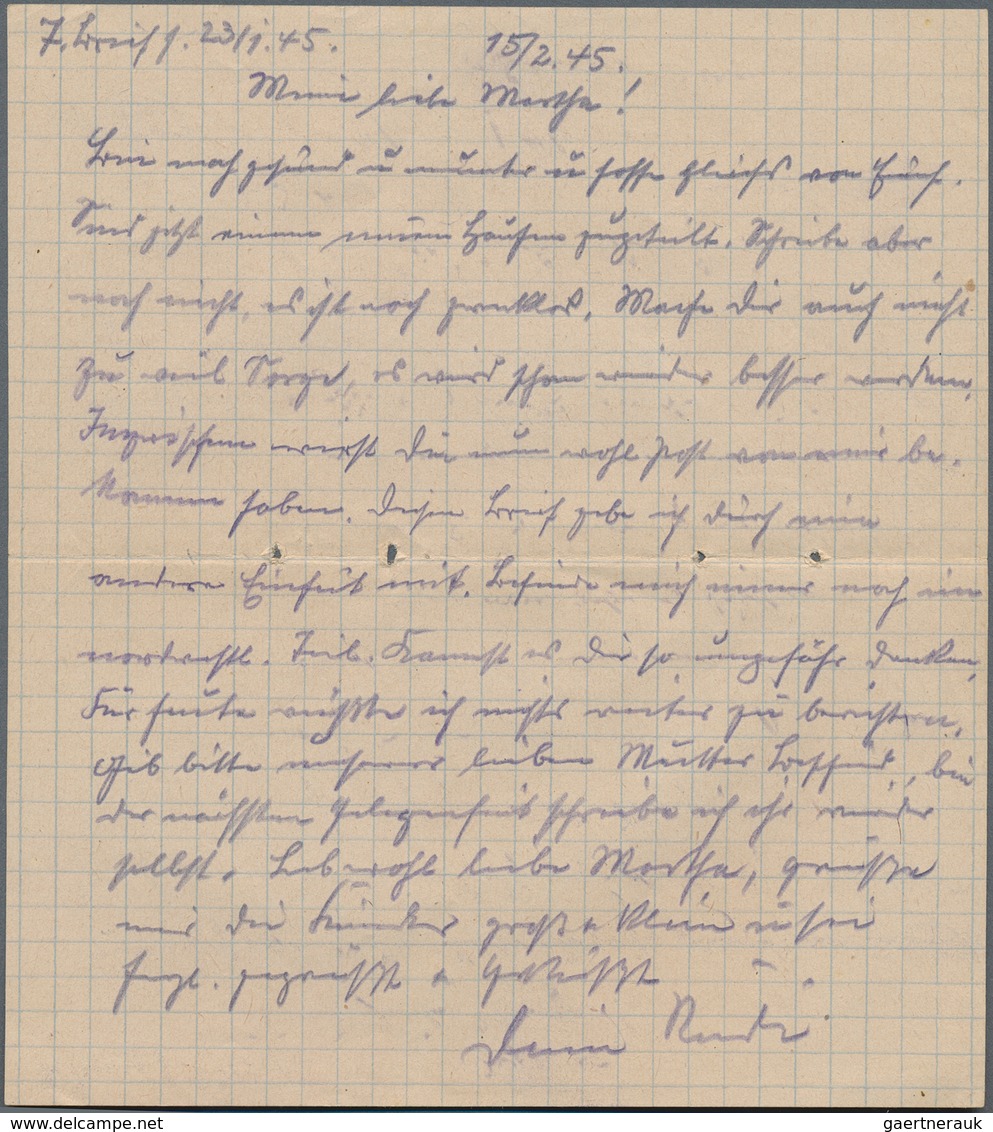 7. Brief s. 23/1.45. 15/2.45.
Meine liebe Martha!
Bin noch gesund u munter u hoffe gleiches von Euch.
Sind jetzt einem neuen Haufen zugeteilt. Schreibe aber
noch nicht, es ist noch zwecklos. Mache Dir auch nicht
zu viel Sorge, es wird schon wieder besser werden.
Inzwischen wirst Du nun wohl Post von mir be-
kommen haben. Diesen Brief gebe ich durch eine
andere Einheit mit. Befinde mich immer noch im
nordwestl. Teil. Kannst es Dir so ungefähr denken.
Für heute wüßte ich nichts weiter zu berichten.
Gib bitte unserer lieben Mutter Bescheid, bei
der nächsten Gelegenheit schreibe ich ihr wieder
selbst. Lebwohl liebe Martha, grüße
mir die Kinder groß u klein u sei
herzl. gegrüßt u geküßt
Dein Rudi
gaertnerauk